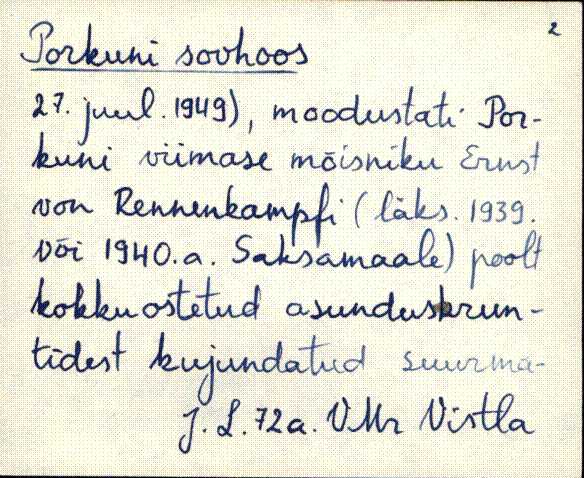 2
Porkuni sovhoos
27. juul. 1949), moodustati Por-
kuni viimase mõisniku Ernst
von Rennenkampfi (läks. 1939.
või 1940.a. Saksamaale) poolt
kokkuostetud asunduskrun-
tidest kujundatud suurma-
J. L. 72a. VMr Vistla